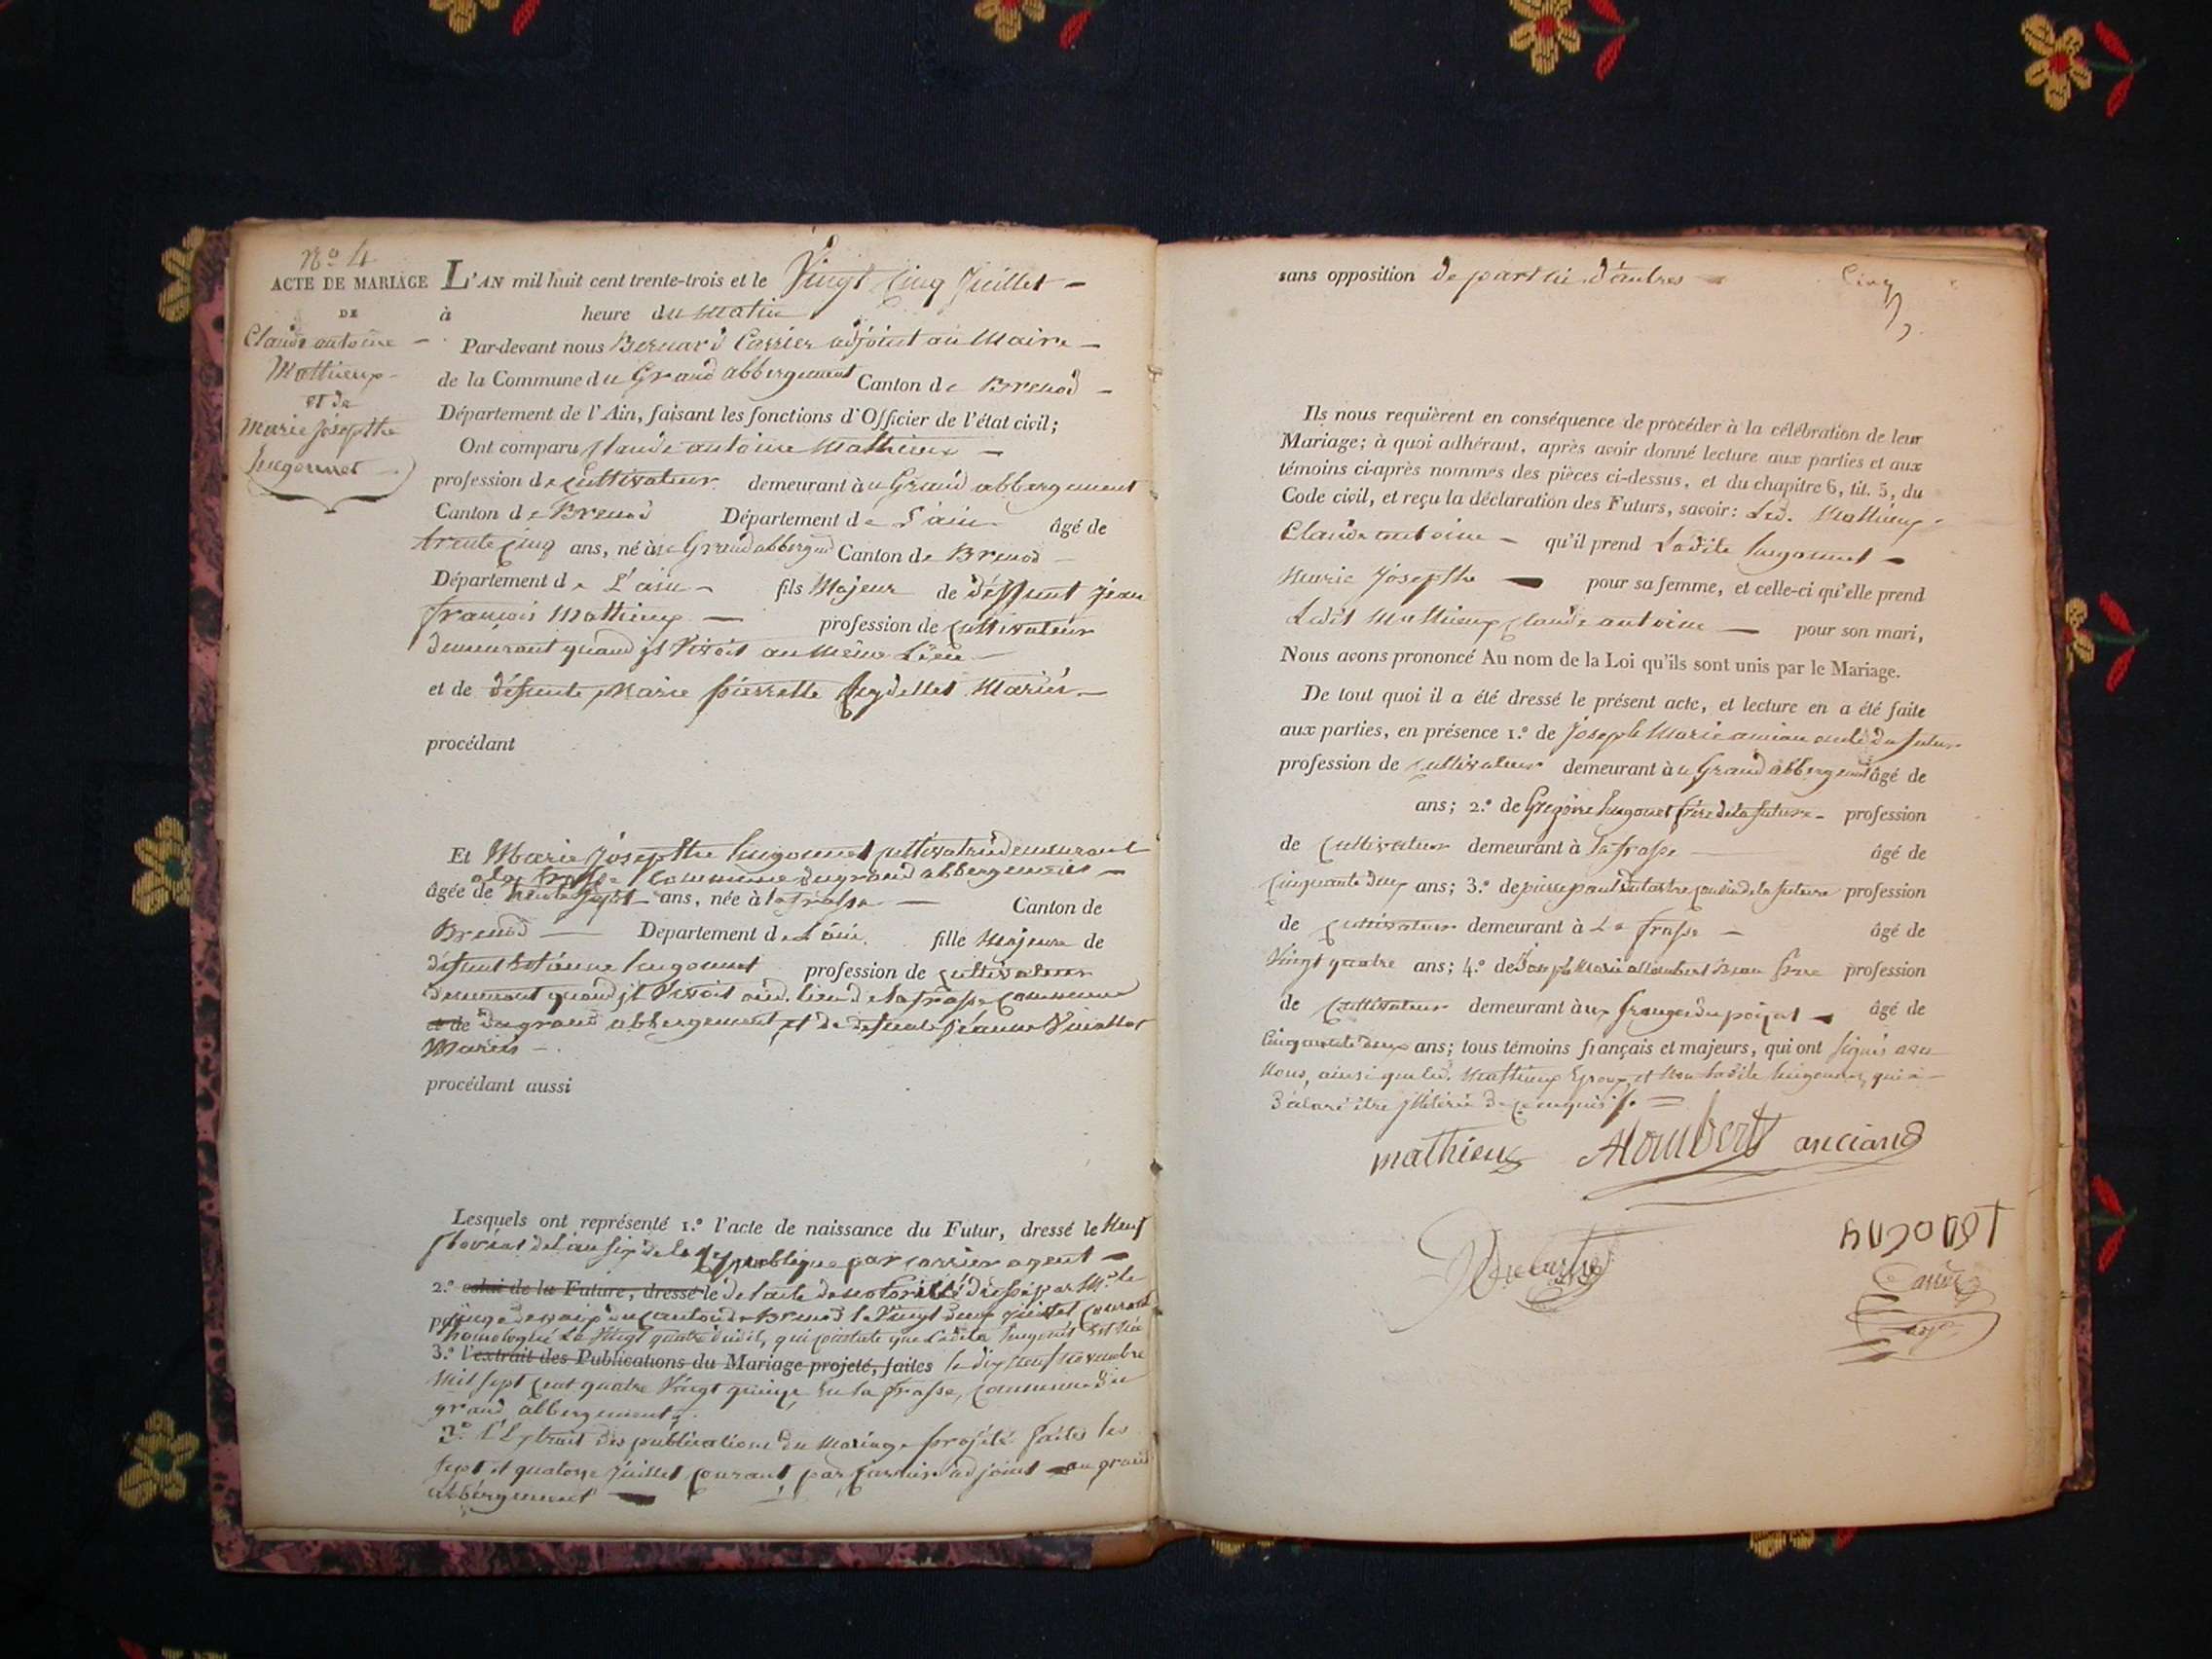 No 4
ACTE DE MARIAGE
DE
Claude antoine
Mathieux
et de
Marie Josephte
hugonnet
L'AN mil huit cent trente-trois et le Vingt Cinq Juillet
à heure du matin
Par-devant nous Bernard Carrier adjoint au Maire
de la Commune du Grand abbergement Canton de Brenod
Département de l'Ain, faisant les fonctions d'Officier de l'état civil;
Ont comparu Claude antoine Mathieux
profession de Cultivateur demeurant au Grand abbergement
Canton de Brenod Département de L'ain âgé de
trente cinq ans, né au Grand abbergmt Canton de Brenod
Département de L'ain fils Majeur de déffunt Jean
françois Mathieux profession de Cultivateur
demeurant quand il Vivoit au même Lieu
et de défunte Marie pierrette Reydellet Mariés
procédant
Et Marie Josephte hugonnet cultivatrice demeurant
a la frasse Commune du grand abbergement
âgée de trente sept ans, née à la frasse Canton de
Brenod Département de L'ain fille Majeure de
défunt Estienne hugonnet profession de cultivateur
demeurant quand il Vivoit aud. lieu de la frasse Commune
et de du grand abbergement et de defunte Jeanne
Mariés
procédant aussi
Lesquels ont représenté 1.º l'acte de naissance du Futur, dressé le Neuf
floréal de l'an six de la République par carrier agent
2.º celui de la Future, dressé le de l'acte de notoriété dressé par Mr le
juge de paix du canton de Brenod le Vingt deux Juillet Courant
homologué Le Vingt quatre dudit, qui constate que Ladite hugonet est née
3.º l'extrait des Publications du Mariage projeté, faites le dix neuf novembre
Mil sept cent quatre Vingt quinze, en la frasse, commune du
grand abbergement.
3º L'Extrait des publications du Mariage projeté faites les
sept et quatorze Juillet courant par Carrier adjoint au grand
abbergement
sans opposition de part ni d'autres
Cinq
Ils nous requièrent en conséquence de procéder à la célébration de leur
Mariage; à quoi adhérant, après avoir donné lecture aux parties et aux
témoins ci-après nommés des pièces ci-dessus, et du chapitre 6, tit. 5, du
Code civil, et reçu la déclaration des Futurs, savoir: Led. Mathieux
Claude antoine qu'il prend Ladite hugonnet
Marie Josephte pour sa femme, et celle-ci qu'elle prend
Ledit Mathieux Claude antoine pour son mari,
Nous avons prononcé Au nom de la Loi qu'ils sont unis par le Mariage.
De tout quoi il a été dressé le présent acte, et lecture en a été faite
aux parties, en présence 1.º de Joseph Marie ancian oncle du futur
profession de cultivateur demeurant au Grand abbergement âgé de
ans; 2.º de Grégoire hugonet frère de la future profession
de Cultivateur demeurant à la frasse âgé de
Cinquante deux ans; 3.º de pierre paul cousin de la future profession
de cultivateur demeurant à La frasse âgé de
Vingt quatre ans; 4.º de Joseph Marie allombert Beau frere profession
de Cultivateur demeurant aux granges du poizat âgé de
Cinquante deux ans; tous témoins français et majeurs, qui ont signés avec
Nous, ainsi que led. Mathieux Epoux et Non Ladite hugonnet qui a
Déclaré être Illitérée de ce enquis.
mathieux Alombert anciand
HUGONET